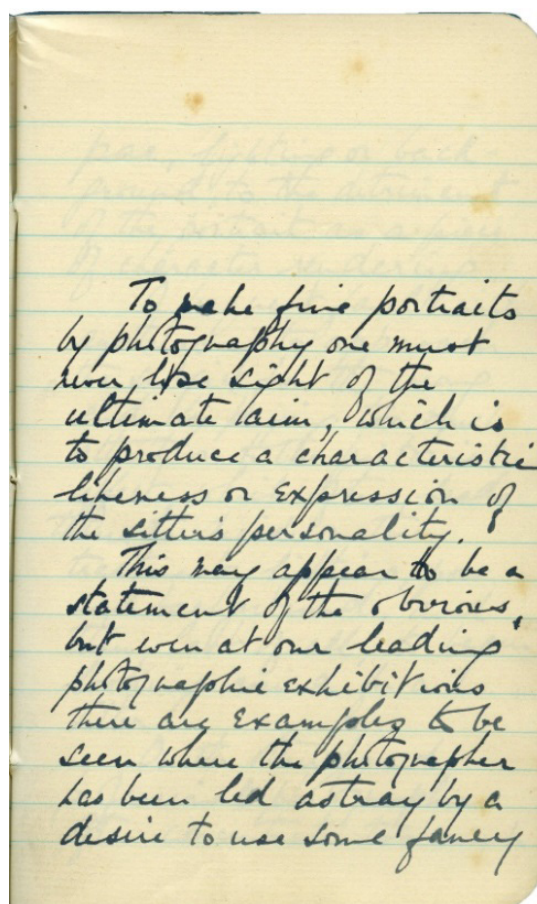 To make fine portraits
by photography one must
never lose sight of the
ultimate aim, which is
to produce a characteristic
likeness or expression of
the sitter's personality.
This may appear to be a
statement of the obvious,
but even at our leading
photographic exhibitions
there are examples to be
seen where the photographer
has been led astray by a
desire to use some fancy